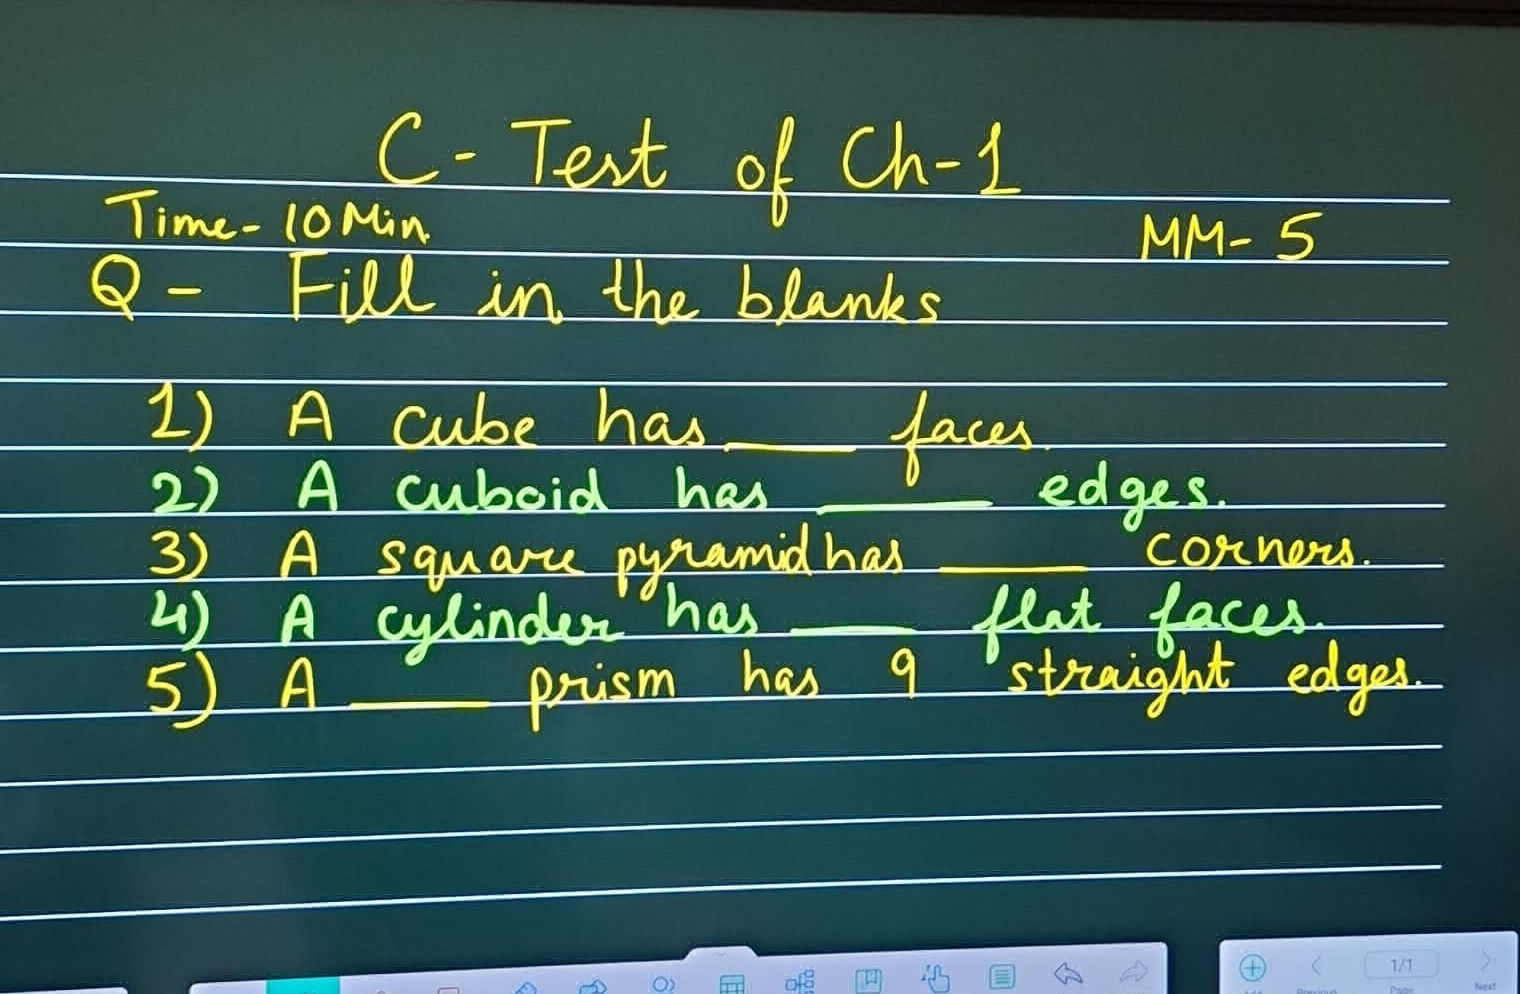 C- Test of Ch-1
Time- 10 Min.
MM- 5
Q - Fill in the blanks
1) A cube has ___ faces.
2) A cuboid has ___ edges.
3) A square pyramid has ___ corners.
4) A cylinder has ___ flat faces.
5) A ___ prism has 9 straight edges.
1/1
Previous
Page
Next